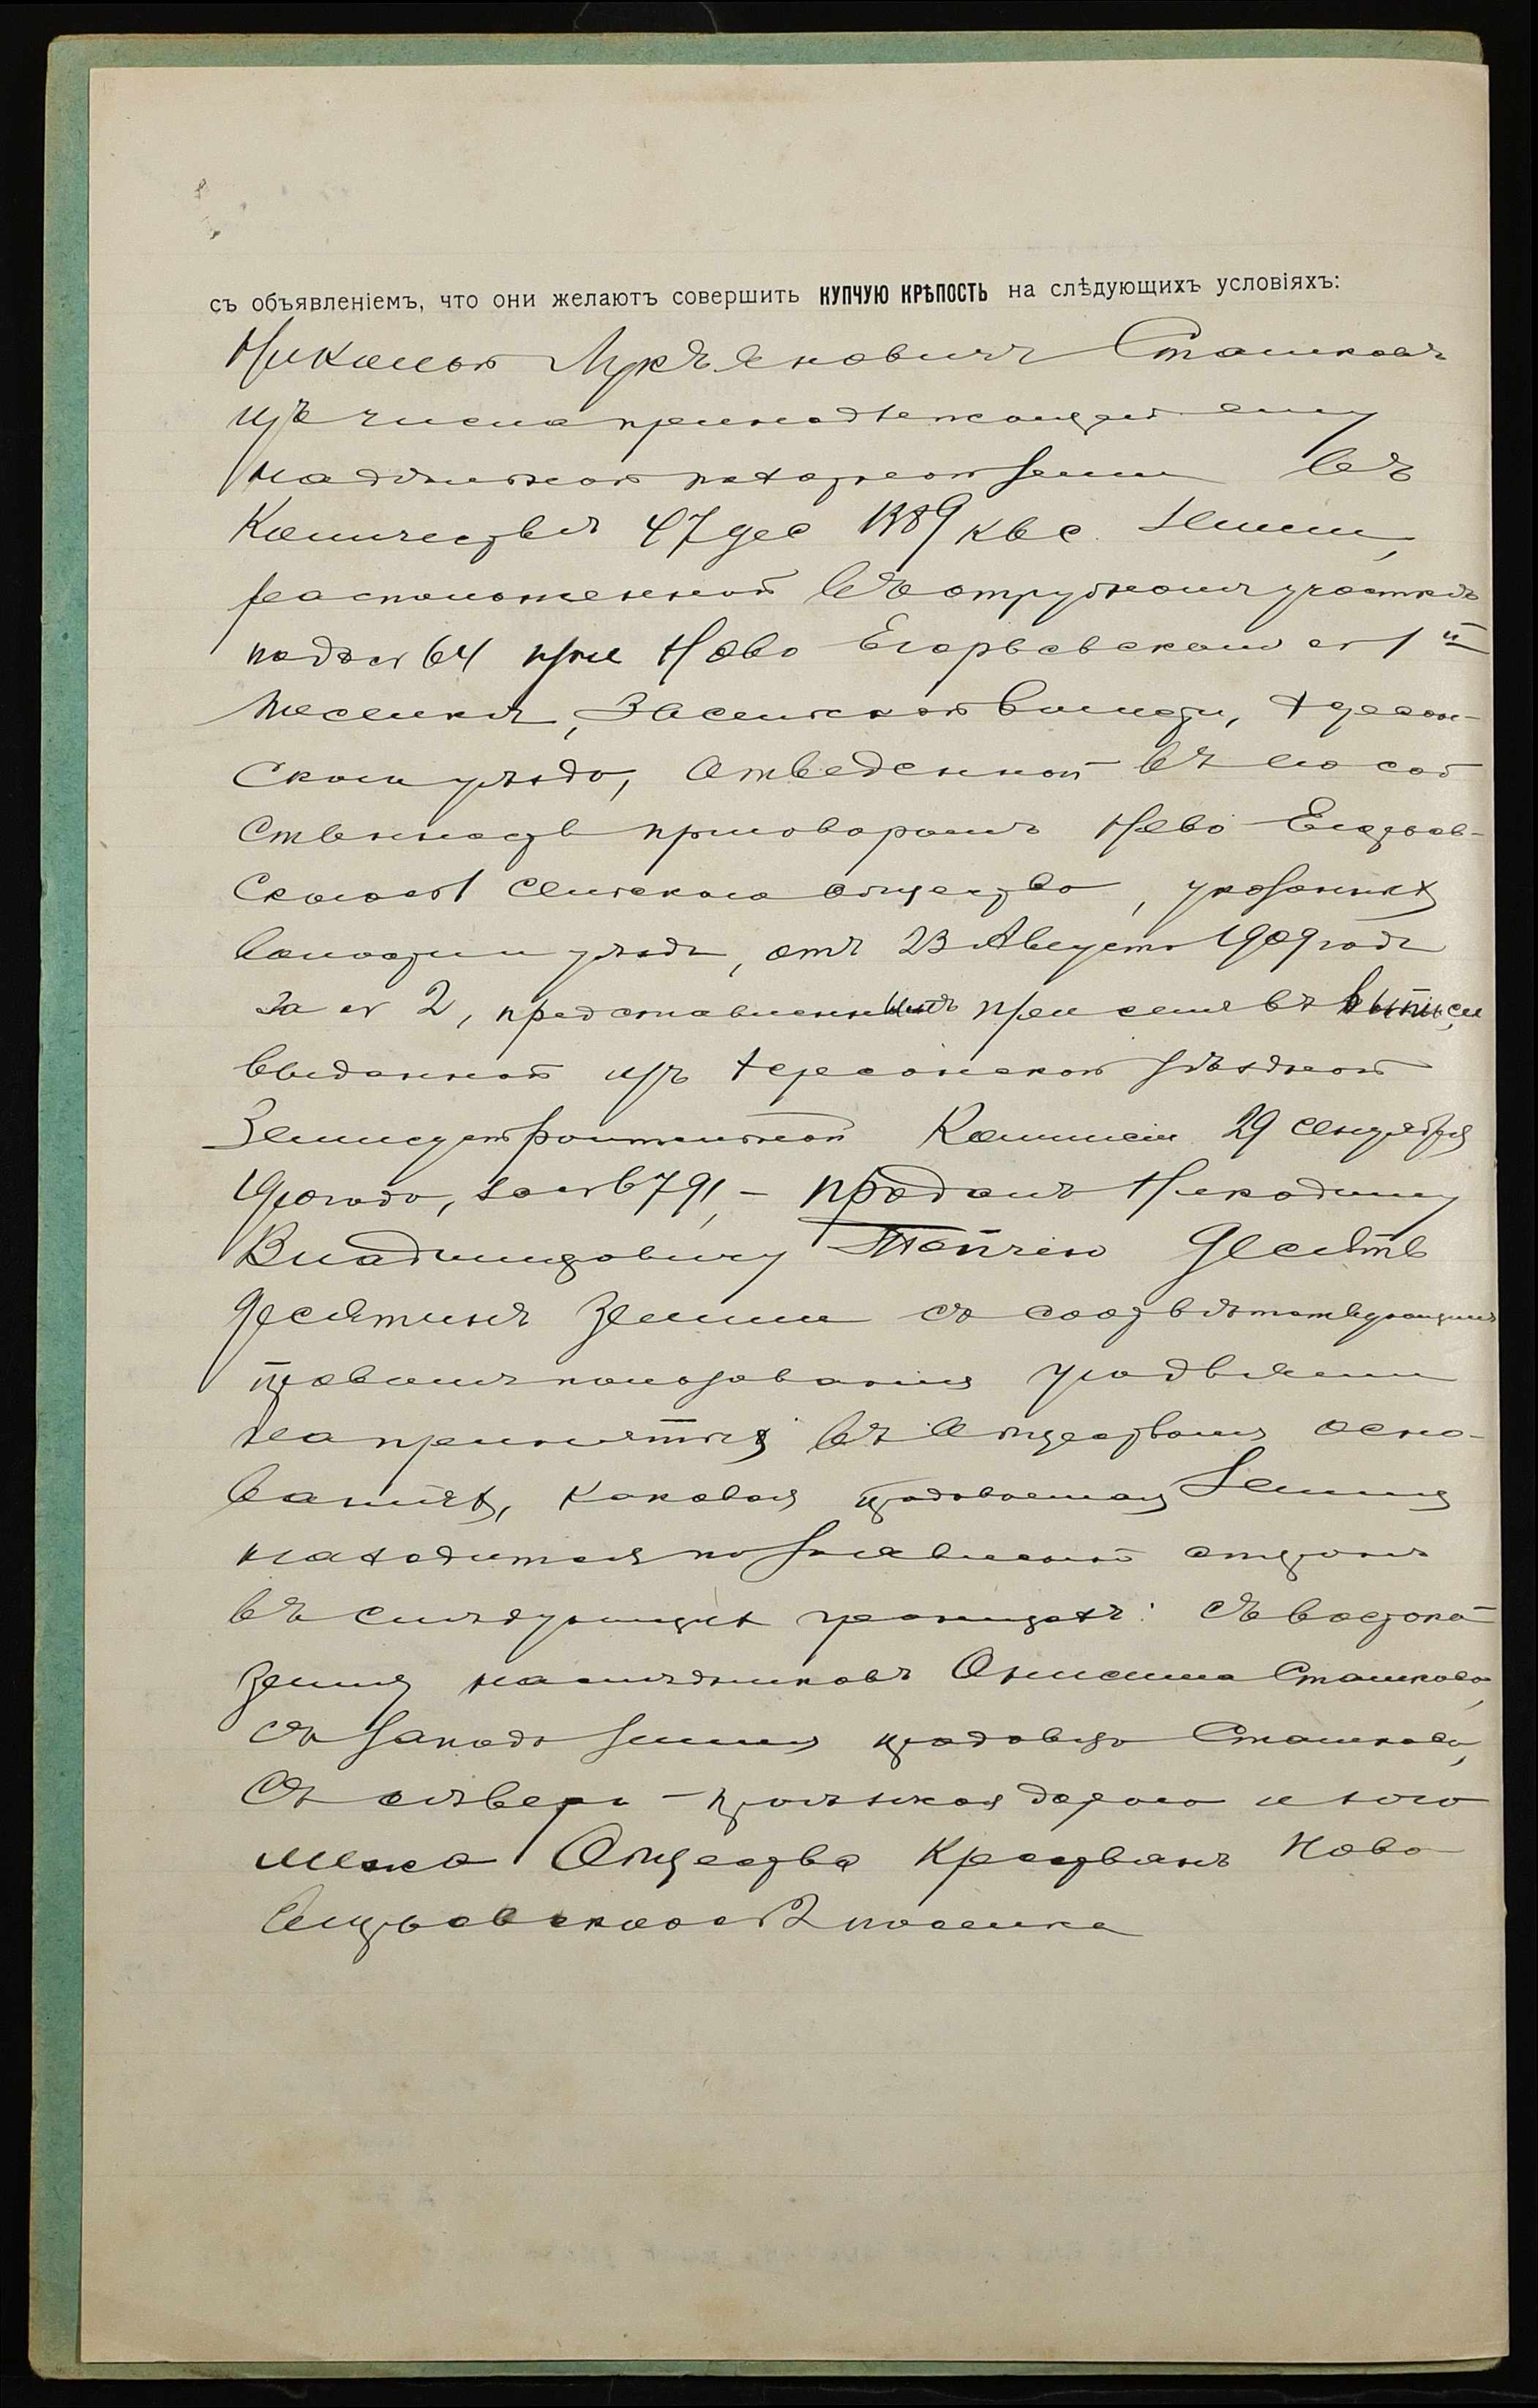 съ объявленіемъ, что они желаютъ совершить КУПЧУЮ КРѢПОСТЬ на слѣдующихъ условіяхъ:
Николай Лукьяновичъ Сташковъ
изъ числа принадлежащей ему
надѣльной пахатной земли въ
Количествѣ 47 дес 1389 кв с. земли,
расположенной въ отрубномъ участкѣ
подъ № 64 при Ново Егорьевскомъ № 1й
поселкѣ, Засельской волости, Херсон-
скаго уѣзда, отведенной въ его соб
ственность приговоромъ Ново Егорьев-
скаго № 1 сельскаго общества, указанныхъ
волости и уѣзда, отъ 23 Августа 1909 года
за № 2, представленнымъ при семъ въ выписи
выданной изъ Херсонской уѣздной
Землеустроительной Комиссіи 29 Сентября
1910 года, за № 6791, – продалъ Никодиму
Владимировичу десять
десятинъ земли съ соотвѣтствующимъ
правомъ пользованія угодьями
на принятыхъ въ Обществѣ осно-
ваніяхъ, каковая продаваемая земля
находится по заявленію сторонъ
въ слѣдующихъ границахъ: съ востока
земля наслѣдниковъ Онисима Сташкова,
съ запада земля продавца Сташкова,
съ сѣвера – проѣзжая дорога и юга
межа Общества Крестьянъ Ново
Егорьевскаго № 2 поселка